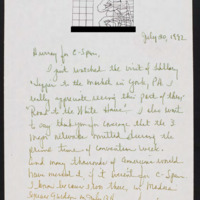 July 20, 1992
Hurray for C-Span,
I just watched the visit of Hillary
to the market in York, PA. I
really appreciate seeing this part of the
"Road to the White House". I also want
to say thank you for coverage that the 3
major networks omitted during the
prime time of convention week.
and many thousands of Americans would
have missed it if it weren't for C-Span.
I know because I was there, in Madison
Square Garden on July